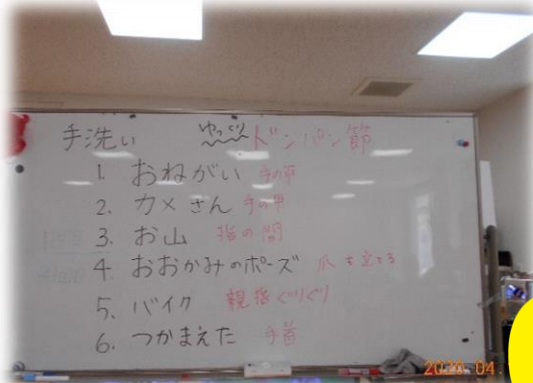 手洗い ゆっくり ドンパン節
1. おねがい 手の平
2. カメさん 手の甲
3. お山 指の間
4. おおかみのポーズ 爪を立てる
5. バイク 親指ぐりぐり
6. つかまえた 手首
2020 04